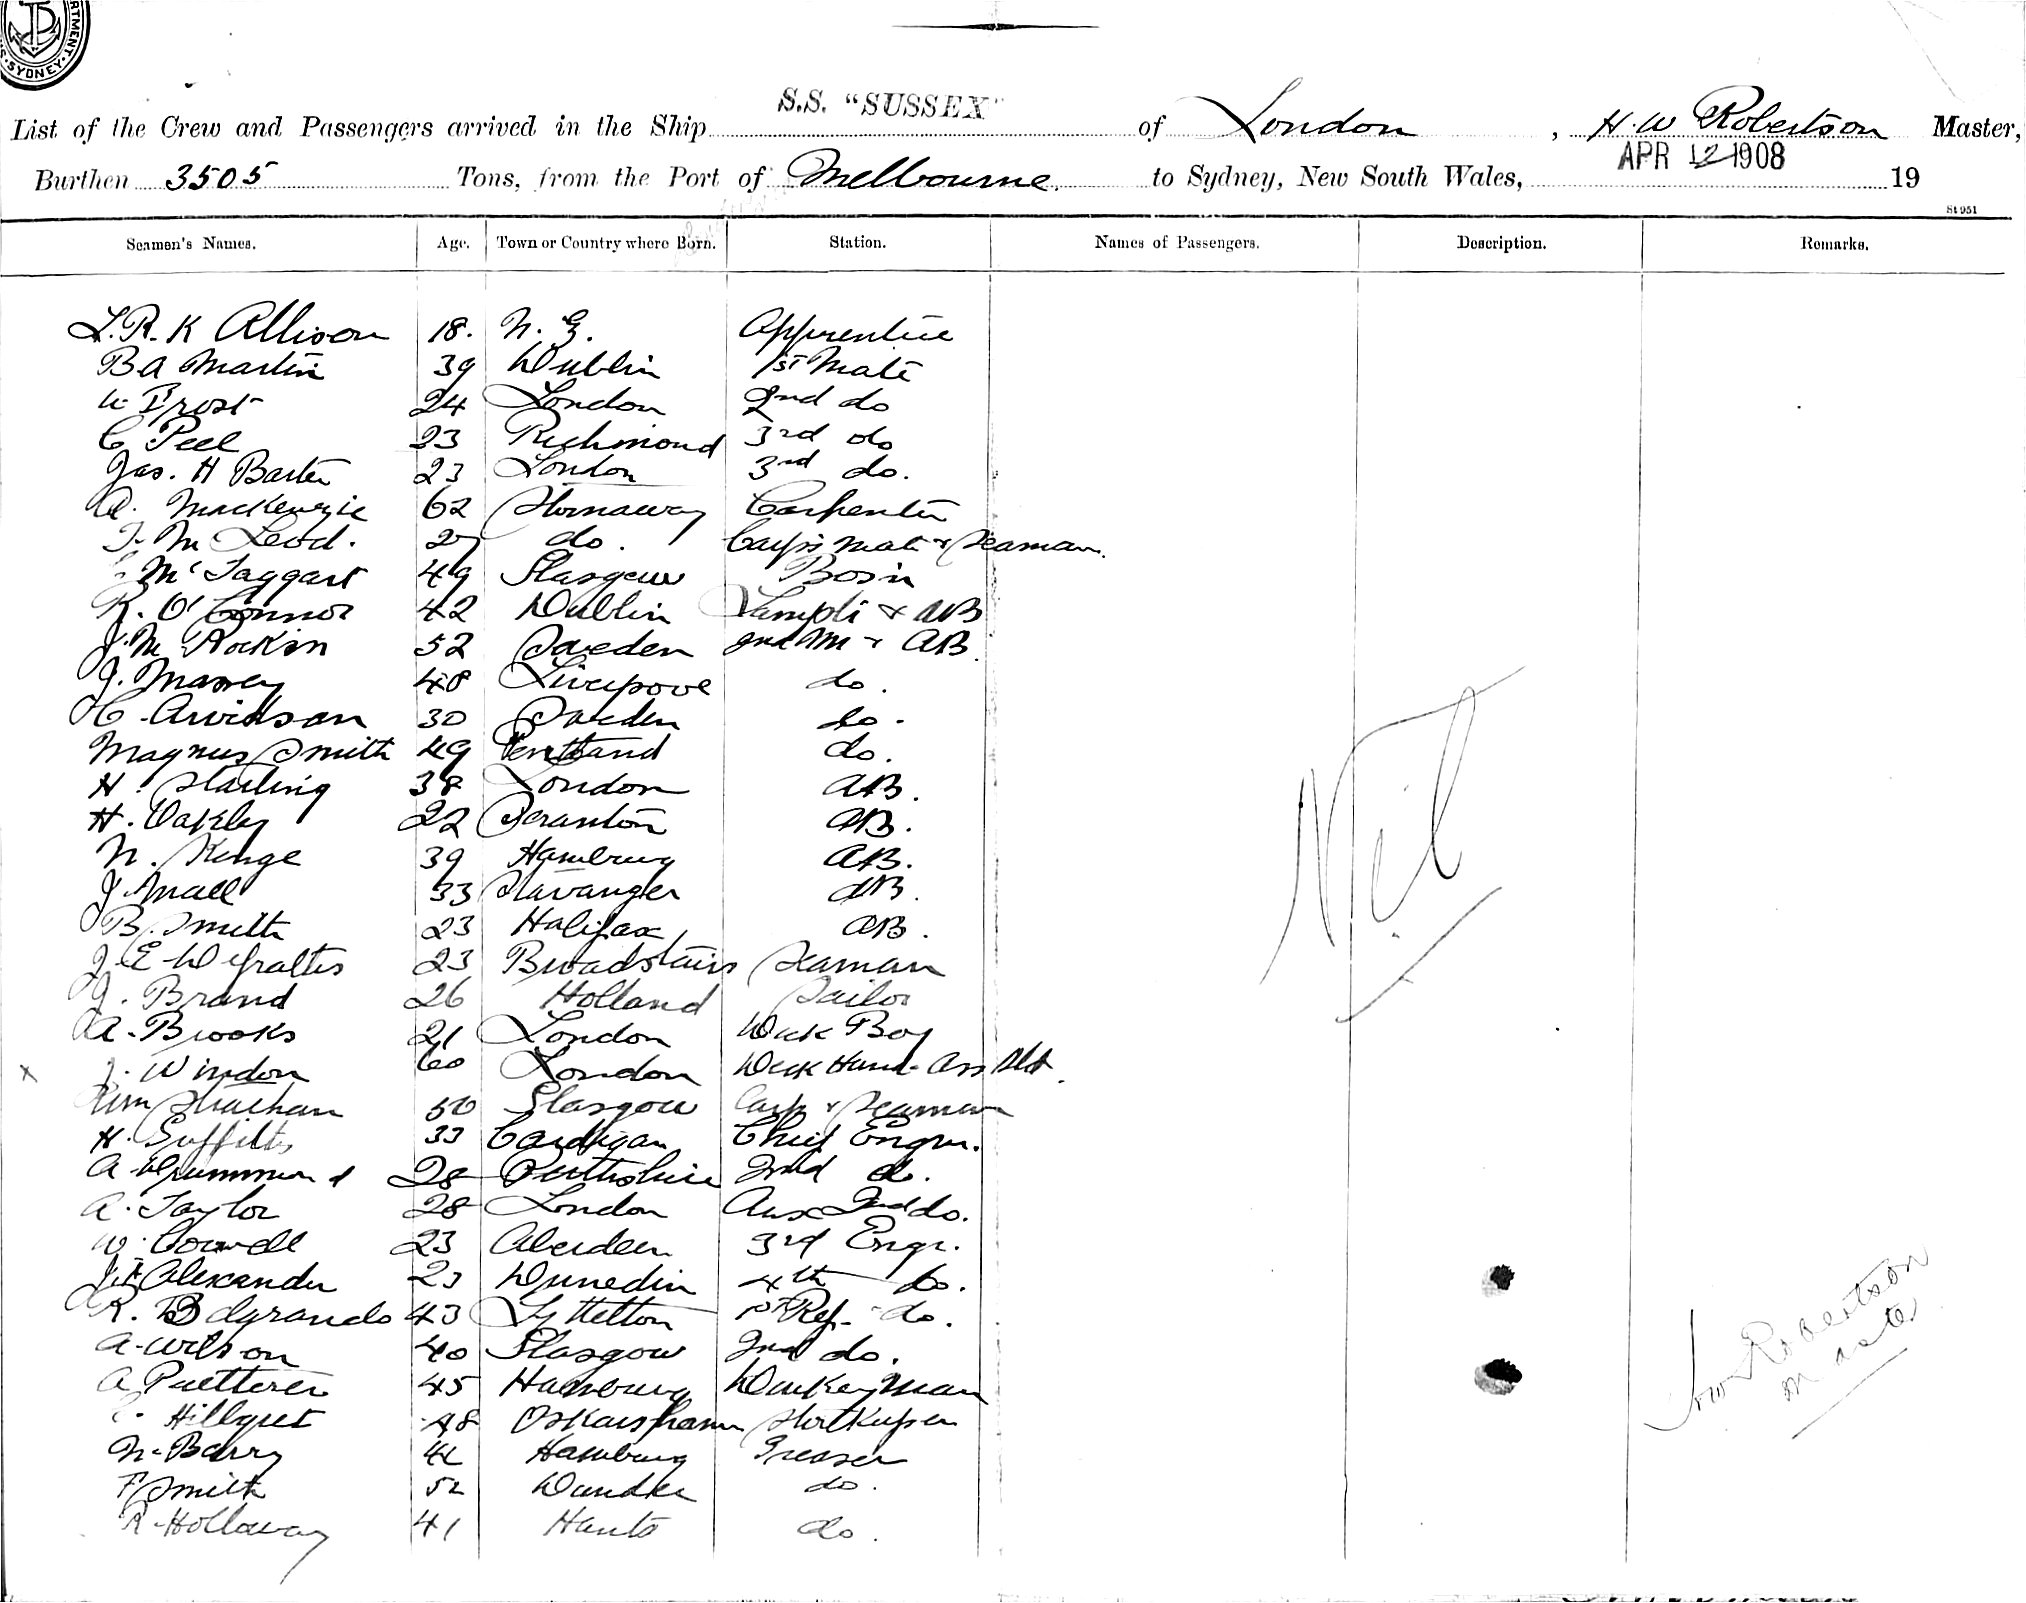 SYDNEY
S.S. "SUSSEX"
List of the Crew and Passengers arrived in the Ship of London, H.W Robertson Master,
Burthen 3505 Tons, from the Port of Melbourne to Sydney, New South Wales, APR 12 1908 19
St 951
Seamen's Names. Age. Town or Country where Born. Station. Names of Passengers. Description. Remarks.
L.R.K Allison 18. N.Z. Apprentice
B A Martin 39 Dublin 1st Mate
W Frost 24 London 2nd do
C Peel 23 Richmond 3rd do
Jas. H Barter 23 London 3rd do.
A. MacKenzie 62 Stornaway Carpenter
T. McLeod. 27 do. Carp's Mate & Seaman.
McTaggart 49 Glasgow Bosin
R. O'Connor 42 Dublin Lamps & AB
J. M 52 Sweden AB
J. Massey 48 Liverpool do.
C. Arvidson 30 Sweden do.
Magnus Smith 49 do.
H. Starling 38 London AB.
H. Oakley 22 Scranton AB.
N. Kruge 39 Hamburg AB.
J. 33 Stavanger AB.
B. Smith 23 Halifax AB.
J. E 23 Broadstairs Seaman
J. Brand 26 Holland Sailor
A. Brooks 21 London Deck Boy
x J. Windon 60 London Deck Hand
Wm Strachan 50 Glasgow Carp & Seaman
H. Griffiths 33 Cardigan Chief Engnr.
A Drummond 28 Perthshire 2nd do.
A. Taylor 28 London Aux 2nd do.
W. 23 Aberdeen 3rd Engr.
Alexander 23 Dunedin 4th do.
R. 43 Lyttelton 1st Ref. do.
A. Wilson 40 Glasgow 2nd do.
A 45 Hamburg Donkeyman
48 Oskarshamn Storekeeper
N. Barry 42 Hamburg Greaser
F Smith 52 Dundee do.
R. Holloway 41 Hants do.
Nil
HW Robertson
Master